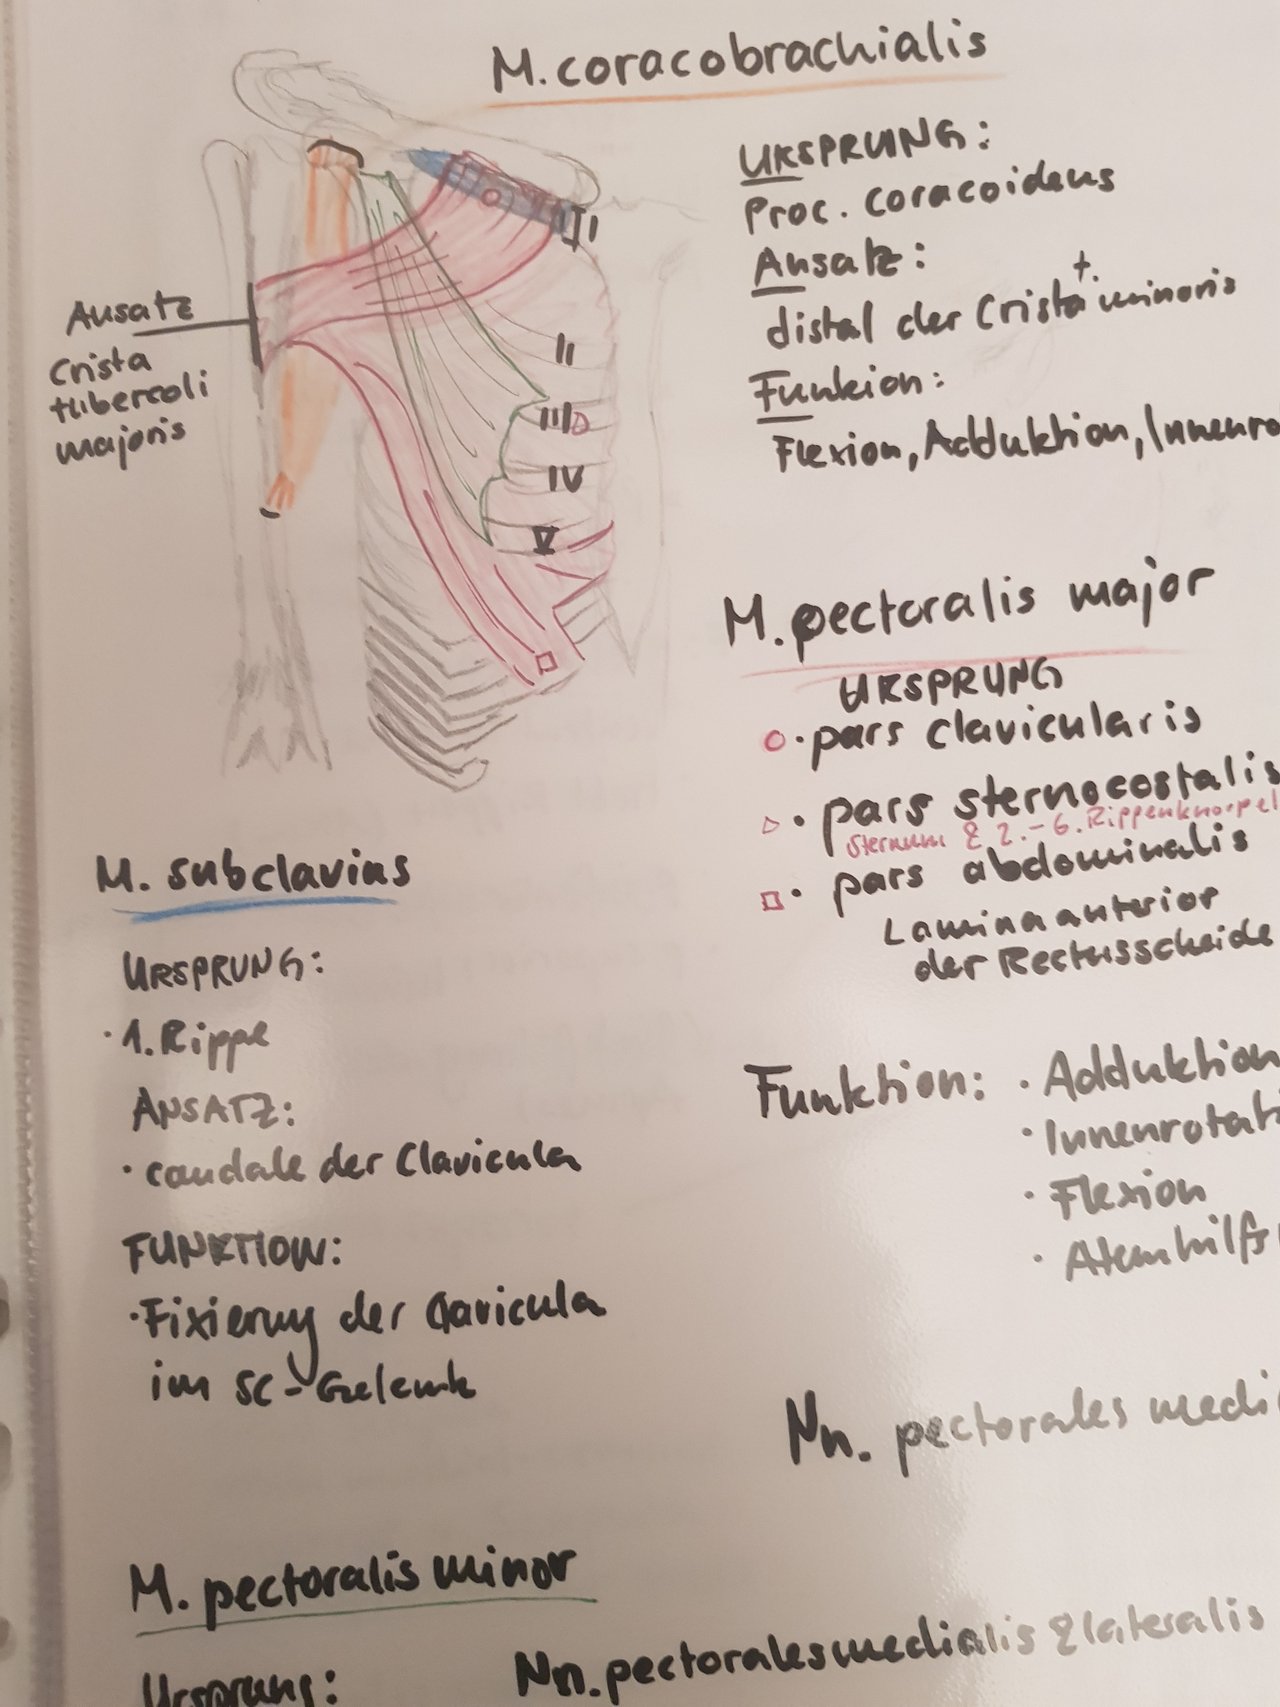 M. coracobrachialis
URSPRUNG:
Proc. coracoideus
Ansatz:
distal der Crista t. minoris
Funkion:
Flexion, Adduktion, Innenro
Ansatz
Crista
tubercoli
majoris
I
II
III
IV
V
M. pectoralis major
URSPRUNG
· pars clavicularis
· pars sternocostalis
Sternum & 2.-6. Rippenknorpel
· pars abdominalis
Lamina anterior
der Rectusscheide
Funktion: · Adduktion
· Innenrotati
· Flexion
· Atemhilfs
Nn. pectorales medi
M. subclavius
URSPRUNG:
· 1. Rippe
ANSATZ:
· caudale der Clavicula
FUNKTION:
· Fixierung der Clavicula
im SC-Gelenk
M. pectoralis minor
Ursprung:
Nn. pectorales medialis & lateralis